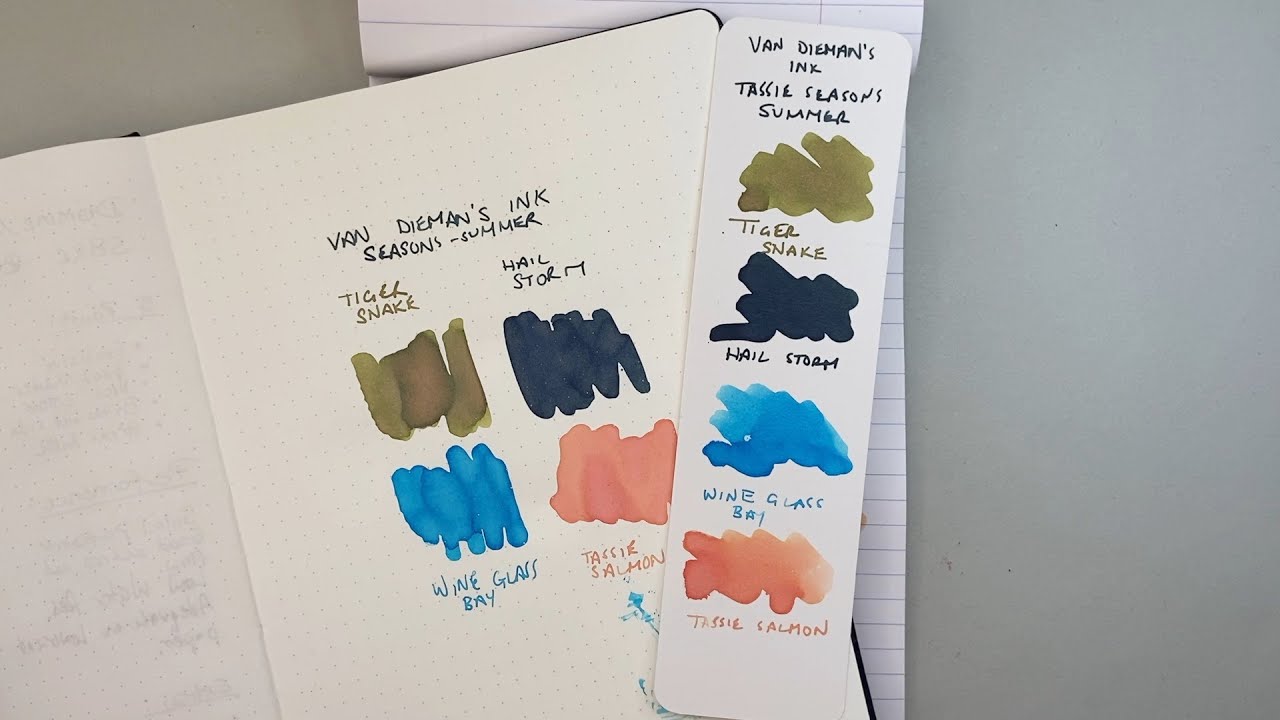 VAN DIEMAN'S INK
SEASONS - SUMMER
TIGER
SNAKE
HAIL
STORM
WINE GLASS
BAY
TASSIE
SALMON
VAN DIEMAN'S
INK
TASSIE SEASONS
SUMMER
TIGER
SNAKE
HAIL STORM
WINE GLASS
BAY
TASSIE SALMON